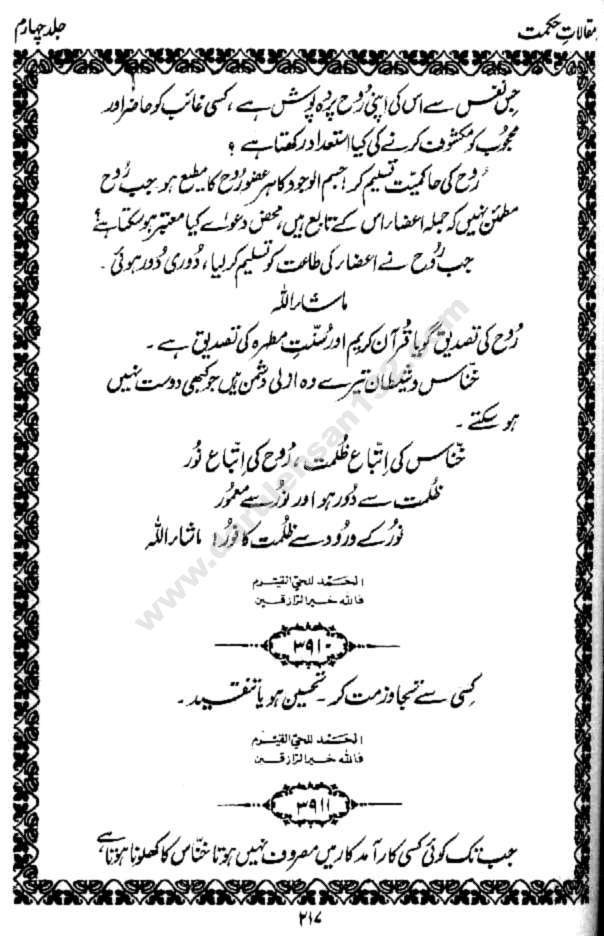 مقالاتِ حکمت
جلد چہارم
جس نفس سے اس کی اپنی رُوح پردہ پوش ہے، کسی غائب کو حاضر اور
محجُوب کو مکشوف کرنے کی کیا استعداد رکھتا ہے ؟
رُوح کی حاکمیّت تسلیم کر! جسم الوجود کا ہر عضو رُوح کا مطیع ہو۔ جب رُوح
مطمئن نہیں کہ جملہ اعضاء اس کے تابع ہیں، محض دعوٰے کیا معتبر ہو سکتا ہے؟
جب رُوح نے اعضاء کی طاعت کو تسلیم کر لیا، دُوری دُور ہوئی۔
ماشاءاللہ
رُوح کی تصدیق گویا قُرآن کریم اور سُنّتِ مطہرہ کی تصدیق ہے۔
خنّاس و شیطان تیرے وہ ازلی دشمن ہیں جو کبھی دوست نہیں
ہو سکتے۔
خنّاس کی اِتّباع ظُلمت، رُوح کی اِتّباع نُور
ظلمت سے دُور ہو اور نُور سے معمُور
نُور کے ورود سے ظلمت کا نُور! ماشاءاللہ
الحَمد للحیّ القیّوم
فاللہ خیر الرّازقین
۳۹۱۰
کِسی سے تجاوز مت کر۔ تحسین ہو یا تنقید۔
الحَمد للحیّ القیّوم
فاللہ خیر الرّازقین
۳۹۱۱
جب تک کوئی کسی کارآمد کار میں مصروف نہیں ہوتا خنّاس کا کھلونا ہوتا ہے،
۲۱۷